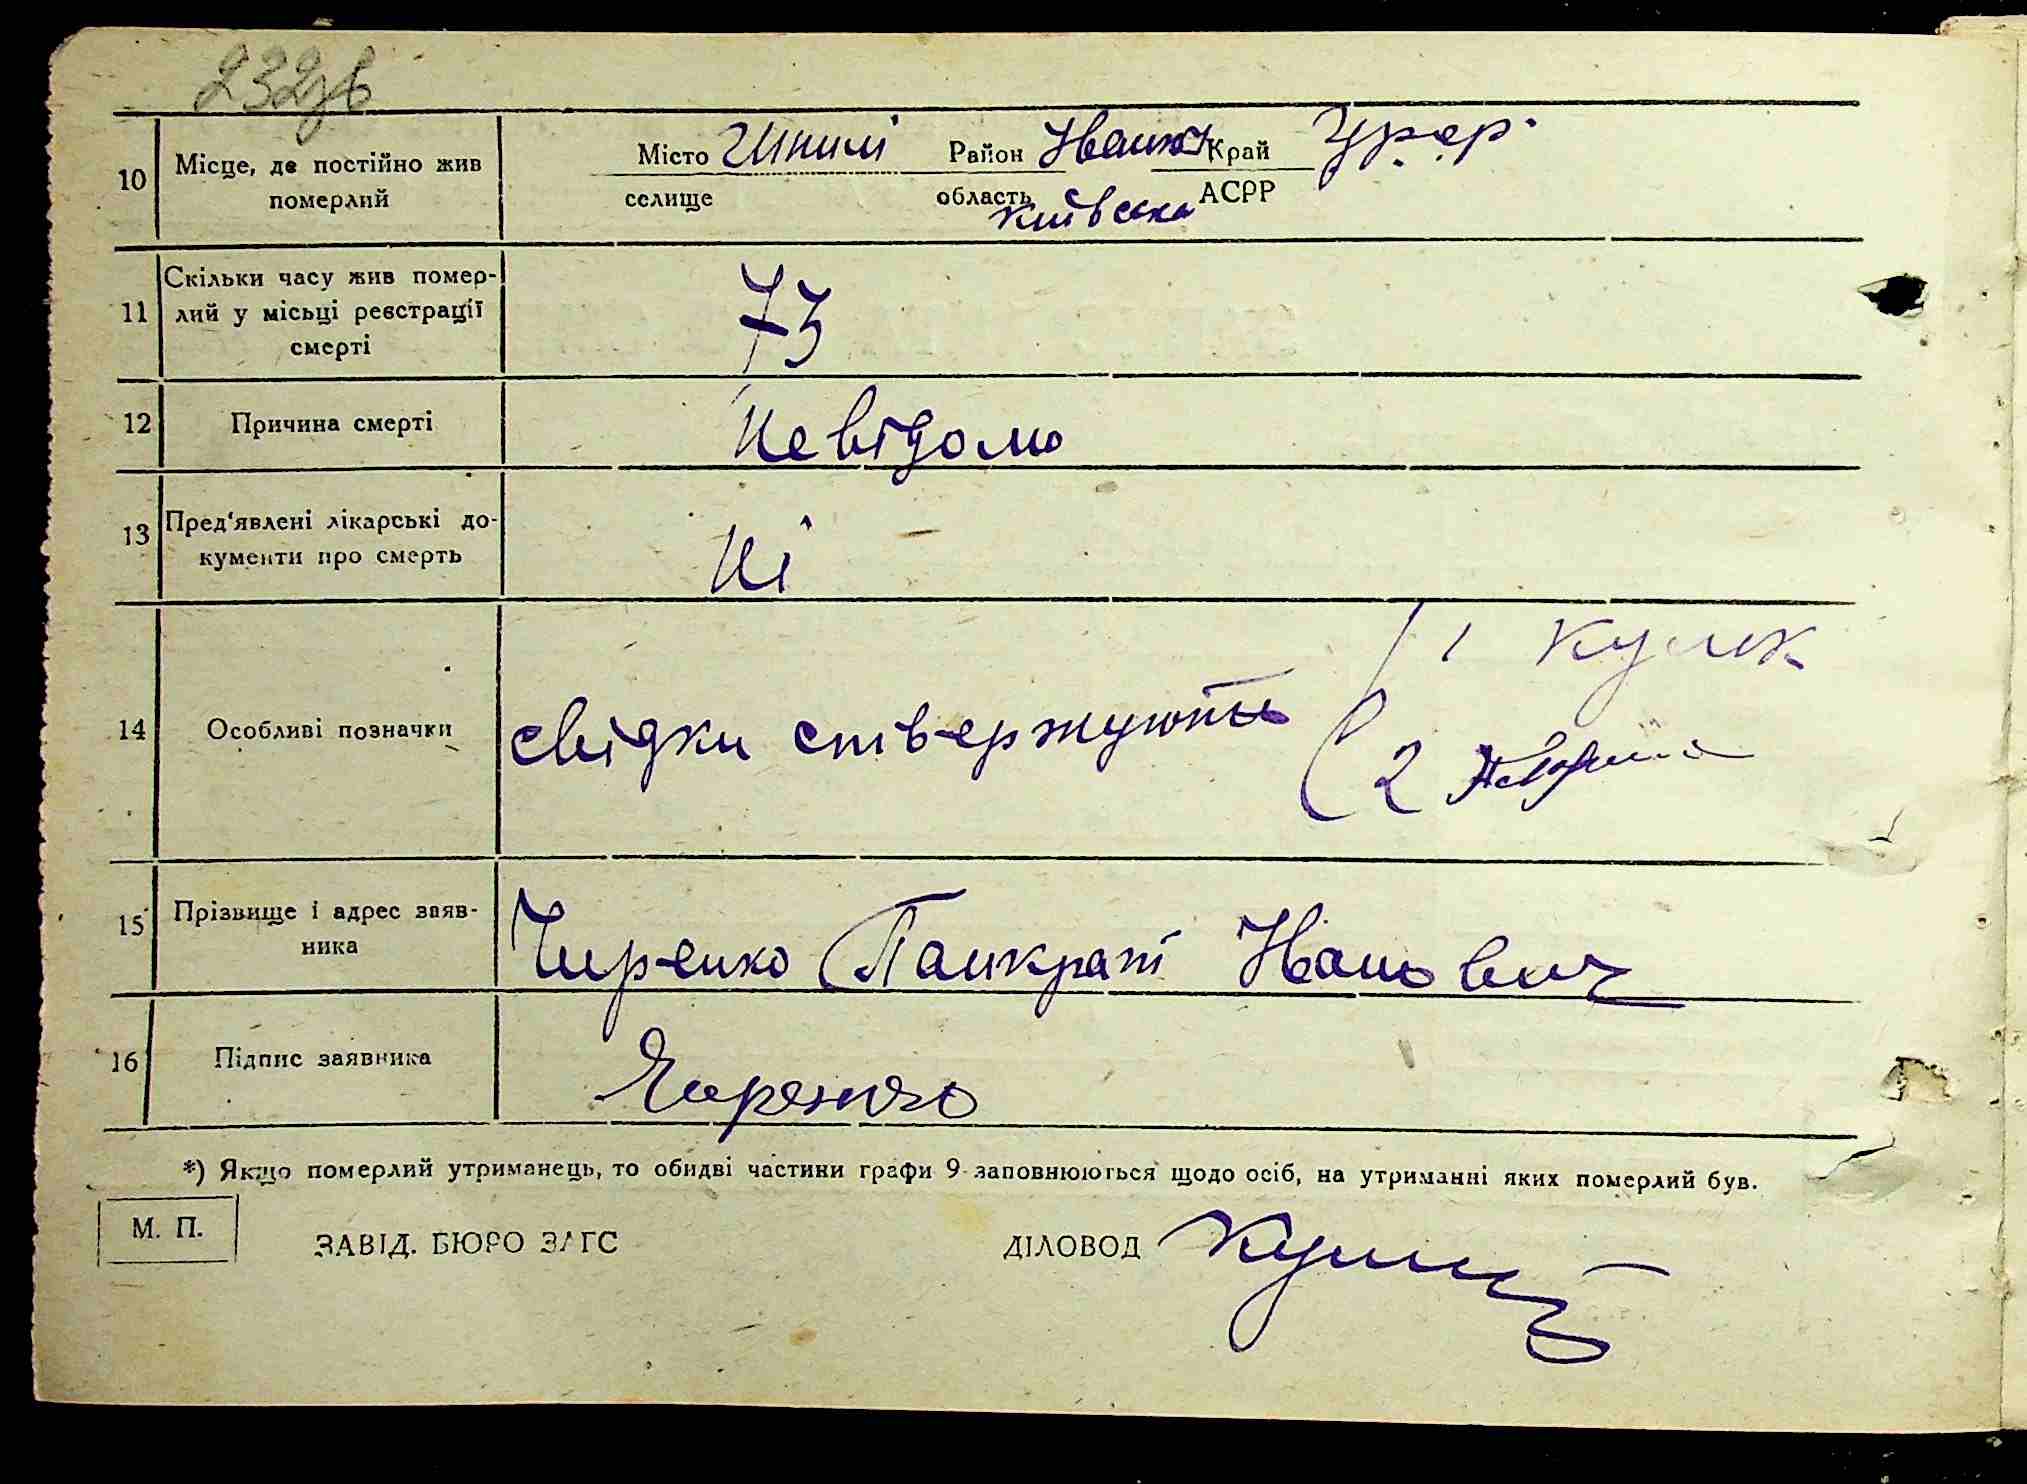 232зв
10 Місце, де постійно жив померлий
Місто Шпилі Район Іванк Край УРСР
селище область Київська АСРР
11 Скільки часу жив помер-
лий у місьці реєстрації
смерті
73
12 Причина смерті Невідомо
13 Пред'явлені лікарські до-
кументи про смерть
Ні
14 Особливі позначки свідки ствержують
1 Кулик
2
15 Прізвище і адрес заяв-
ника
Чиренко Панкрат Іванович
16 Підпис заявника Чиренко
*) Якщо померлий утриманець, то обидві частини графи 9 заповнюються щодо осіб, на утриманні яких померлий був.
М. П.
ЗАВІД. БЮРО ЗАГС ДІЛОВОД